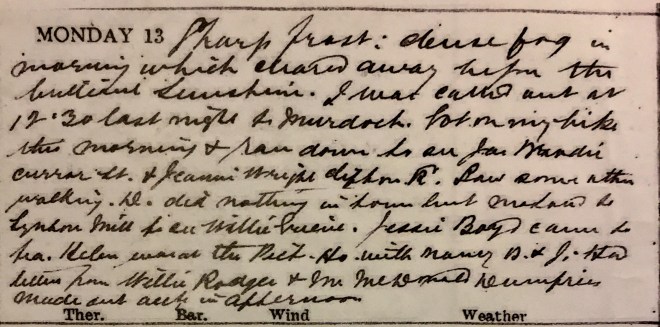 MONDAY 13 Sharp frost: dense fog in
morning which cleared away before the
brilliant Sunshine. I was called out at
12.30 last night to Murdoch. Got on my bike
this morning & ran down to see Jas
St. & Jeannie Wright Clifton R. Saw some other
walking. D. did nothing in town but
Mill to see Willie. Jessie Boyd came to
tea. Helen was at the Pict. Ho. with Nancy B. & J. Had
letters from Willie Rodger & Mr McDonald Dumfries
Made out accts in afternoon
Ther. Bar. Wind Weather